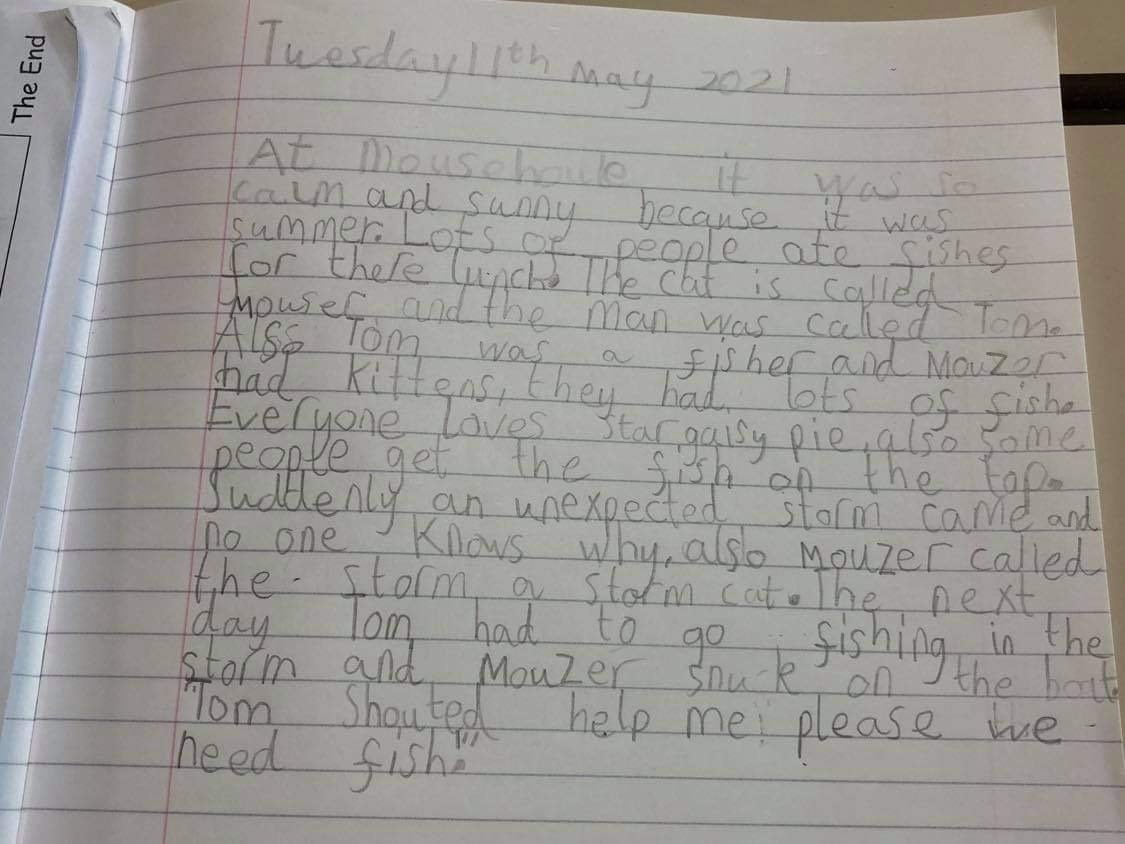 The End
Tuesday 11th May 2021
At Mousehoule it was so
calm and sunny because it was
summer. Lots of people ate fishes
for there lunch. The cat is called
Mouser and the man was called Tom.
Also Tom was a fisher and Mouzer
had kittens, they had lots of fish.
Everyone loves star gaisy pie, also some
people get the fish on the top.
Suddenly an unexpected storm came and
no one knows why, also Mouzer called
the storm a storm cat. The next
day Tom had to go fishing in the
storm and Mouzer snuck on the boat.
"Tom shouted help me! please we
need fish."